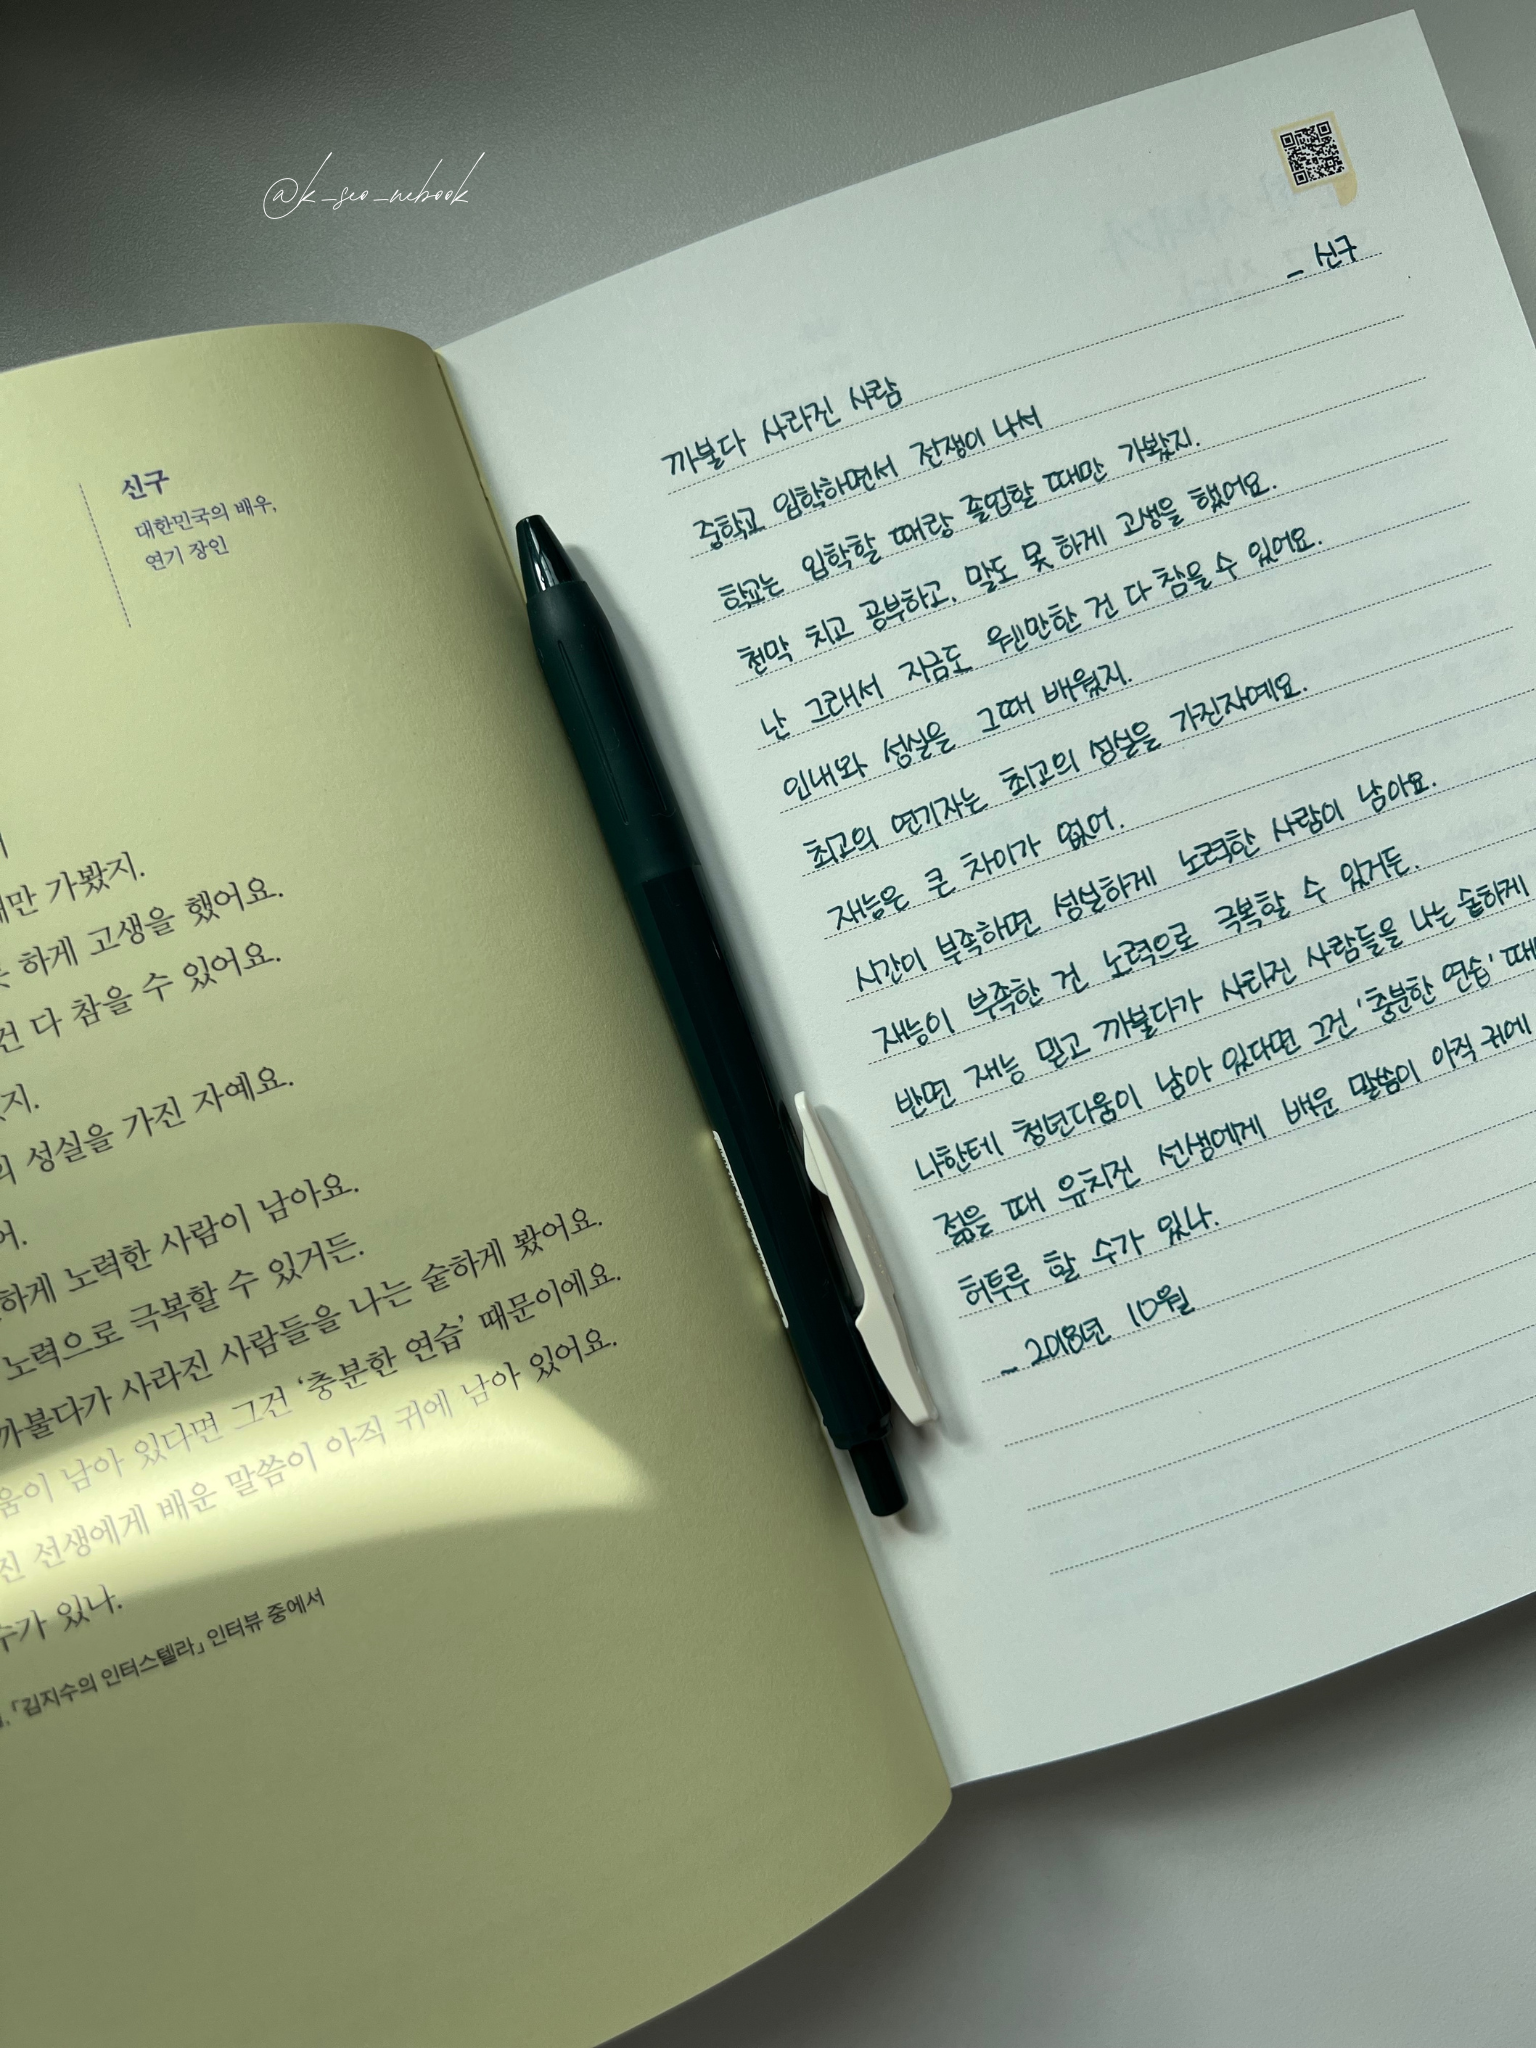 @k_seo_nebook
신구
대한민국의 배우,
연기 장인
때만 가봤지.
못 하게 고생을 했어요.
건 다 참을 수 있어요.
지.
의 성실을 가진 자예요.
어.
하게 노력한 사람이 남아요.
노력으로 극복할 수 있거든.
까불다가 사라진 사람들을 나는 숱하게 봤어요.
움이 남아 있다면 그건 '충분한 연습' 때문이에요.
진 선생에게 배운 말씀이 아직 귀에 남아 있어요.
수가 있나.
「김지수의 인터스텔라」 인터뷰 중에서
- 신구
까불다 사라진 사람
중학교 입학하면서 전쟁이 나서
학교는 입학할 때랑 졸업할 때만 가봤지.
천막 치고 공부하고, 말도 못 하게 고생을 했어요.
난 그래서 지금도 웬만한 건 다 참을 수 있어요.
인내와 성실을 그때 배웠지.
최고의 연기자는 최고의 성실을 가진자예요.
재능은 큰 차이가 없어.
시간이 부족하면 성실하게 노력한 사람이 남아요.
재능이 부족한 건 노력으로 극복할 수 있거든.
반면 재능 믿고 까불다가 사라진 사람들을 나는 숱하게
나한테 청년다움이 남아 있다면 그건 '충분한 연습' 때
젊을 때 유치진 선생에게 배운 말씀이 아직 귀에
허투루 할 수가 있나.
- 2018년 10월